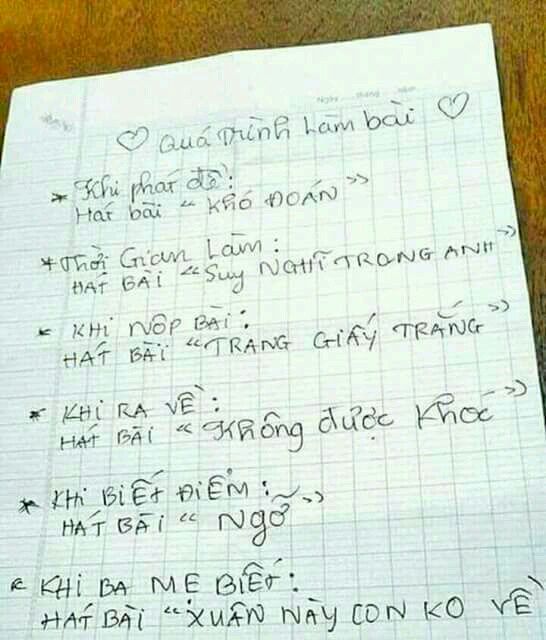 Ngày tháng năm
♡ Quá Trình Làm bài ♡
* Khi phát đề:
Hát bài “KHÓ ĐOÁN”
* Thời Gian Làm:
HÁT BÀI “Suy NGHĨ TRONG ANH”
* KHI NỘP BÀI:
HÁT BÀI “TRANG GIẤY TRẮNG”
* KHI RA VỀ:
HÁT BÀI “Không được Khóc”
* KHI BIẾT ĐIỂM:
HÁT BÀI “Ngỡ”
* KHI BA MẸ BIẾT:
HÁT BÀI “XUÂN NÀY CON KO VỀ